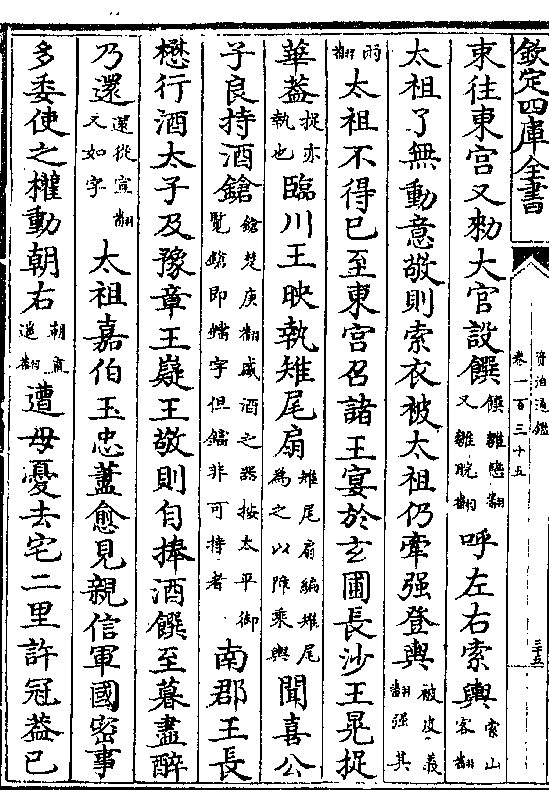 欽定四庫全書
資治通鑑
卷一百三十五
東往東宮又勅大官設饌饌雛戀翻又雛睆翻呼左右索輿索山客翻
太祖了無動意敬則索衣被太祖仍牽强登輿被皮義翻强其
兩翻太祖不得已至東宮召諸王宴於玄圃長沙王晃捉
華蓋捉亦執也臨川王映執雉尾扇雉尾扇編雉尾為之以障乘輿聞喜公
子良持酒鎗鎗楚庚翻盛酒之器按太平御覽鎗即鐺字但鐺非可持者南郡王長
懋行酒太子及豫章王嶷王敬則自捧酒饌至暮盡醉
乃還還從宣翻又如字太祖嘉伯玉忠藎愈見親信軍國密事
多委使之權動朝右朝直遙翻遭母憂去宅二里許冠蓋已